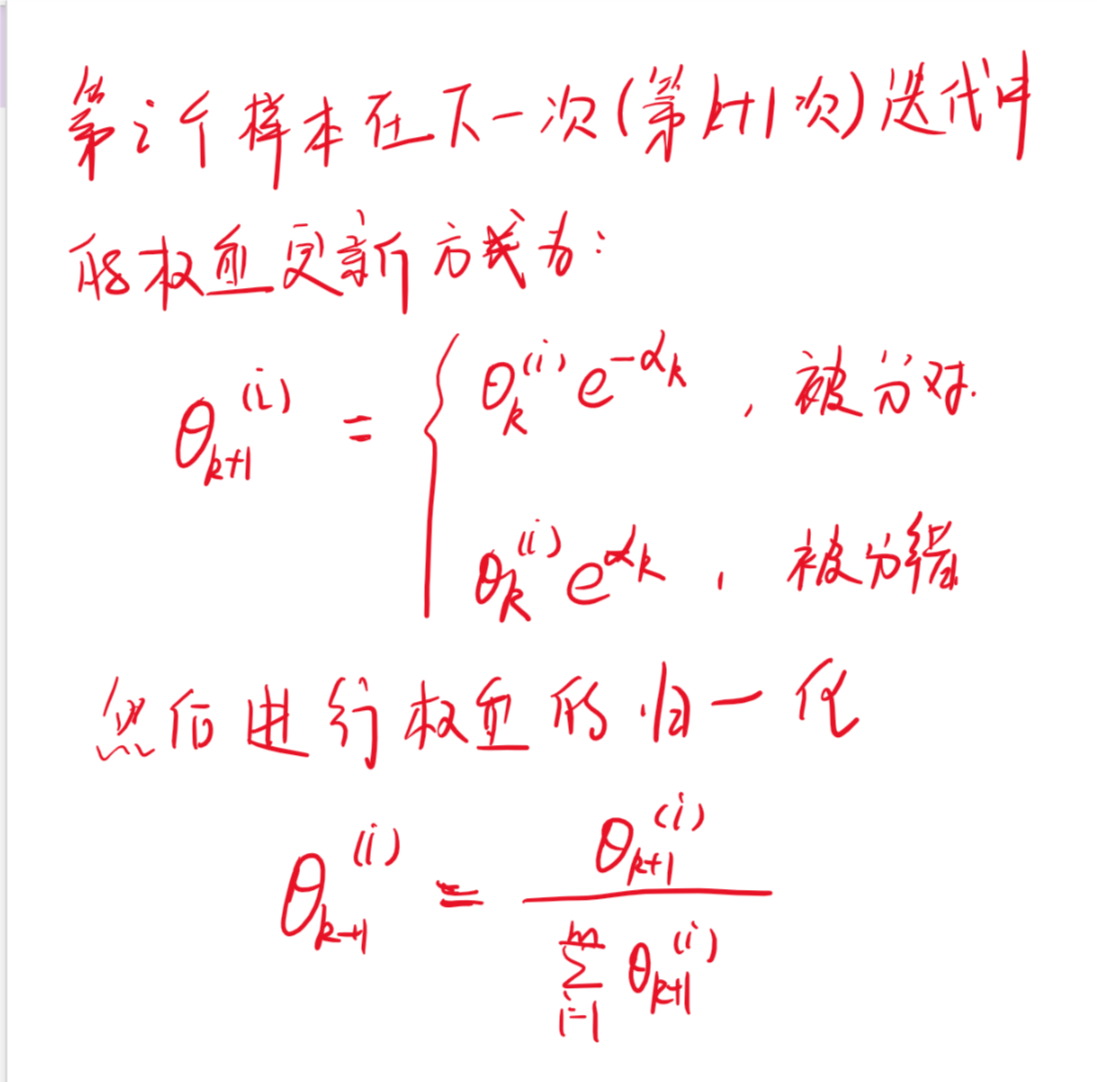 第i个样本在下一次(第k+1次)迭代中
的权重更新方式为:
θ_{k+1}^{(i)} = { θ_k^{(i)} e^{-α_k} , 被分对.
θ_k^{(i)} e^{α_k} , 被分错
然后进行权重的归一化
θ_{k+1}^{(i)} = \frac{θ_{k+1}^{(i)}}{\sum_{i=1}^{m} θ_{k+1}^{(i)}}